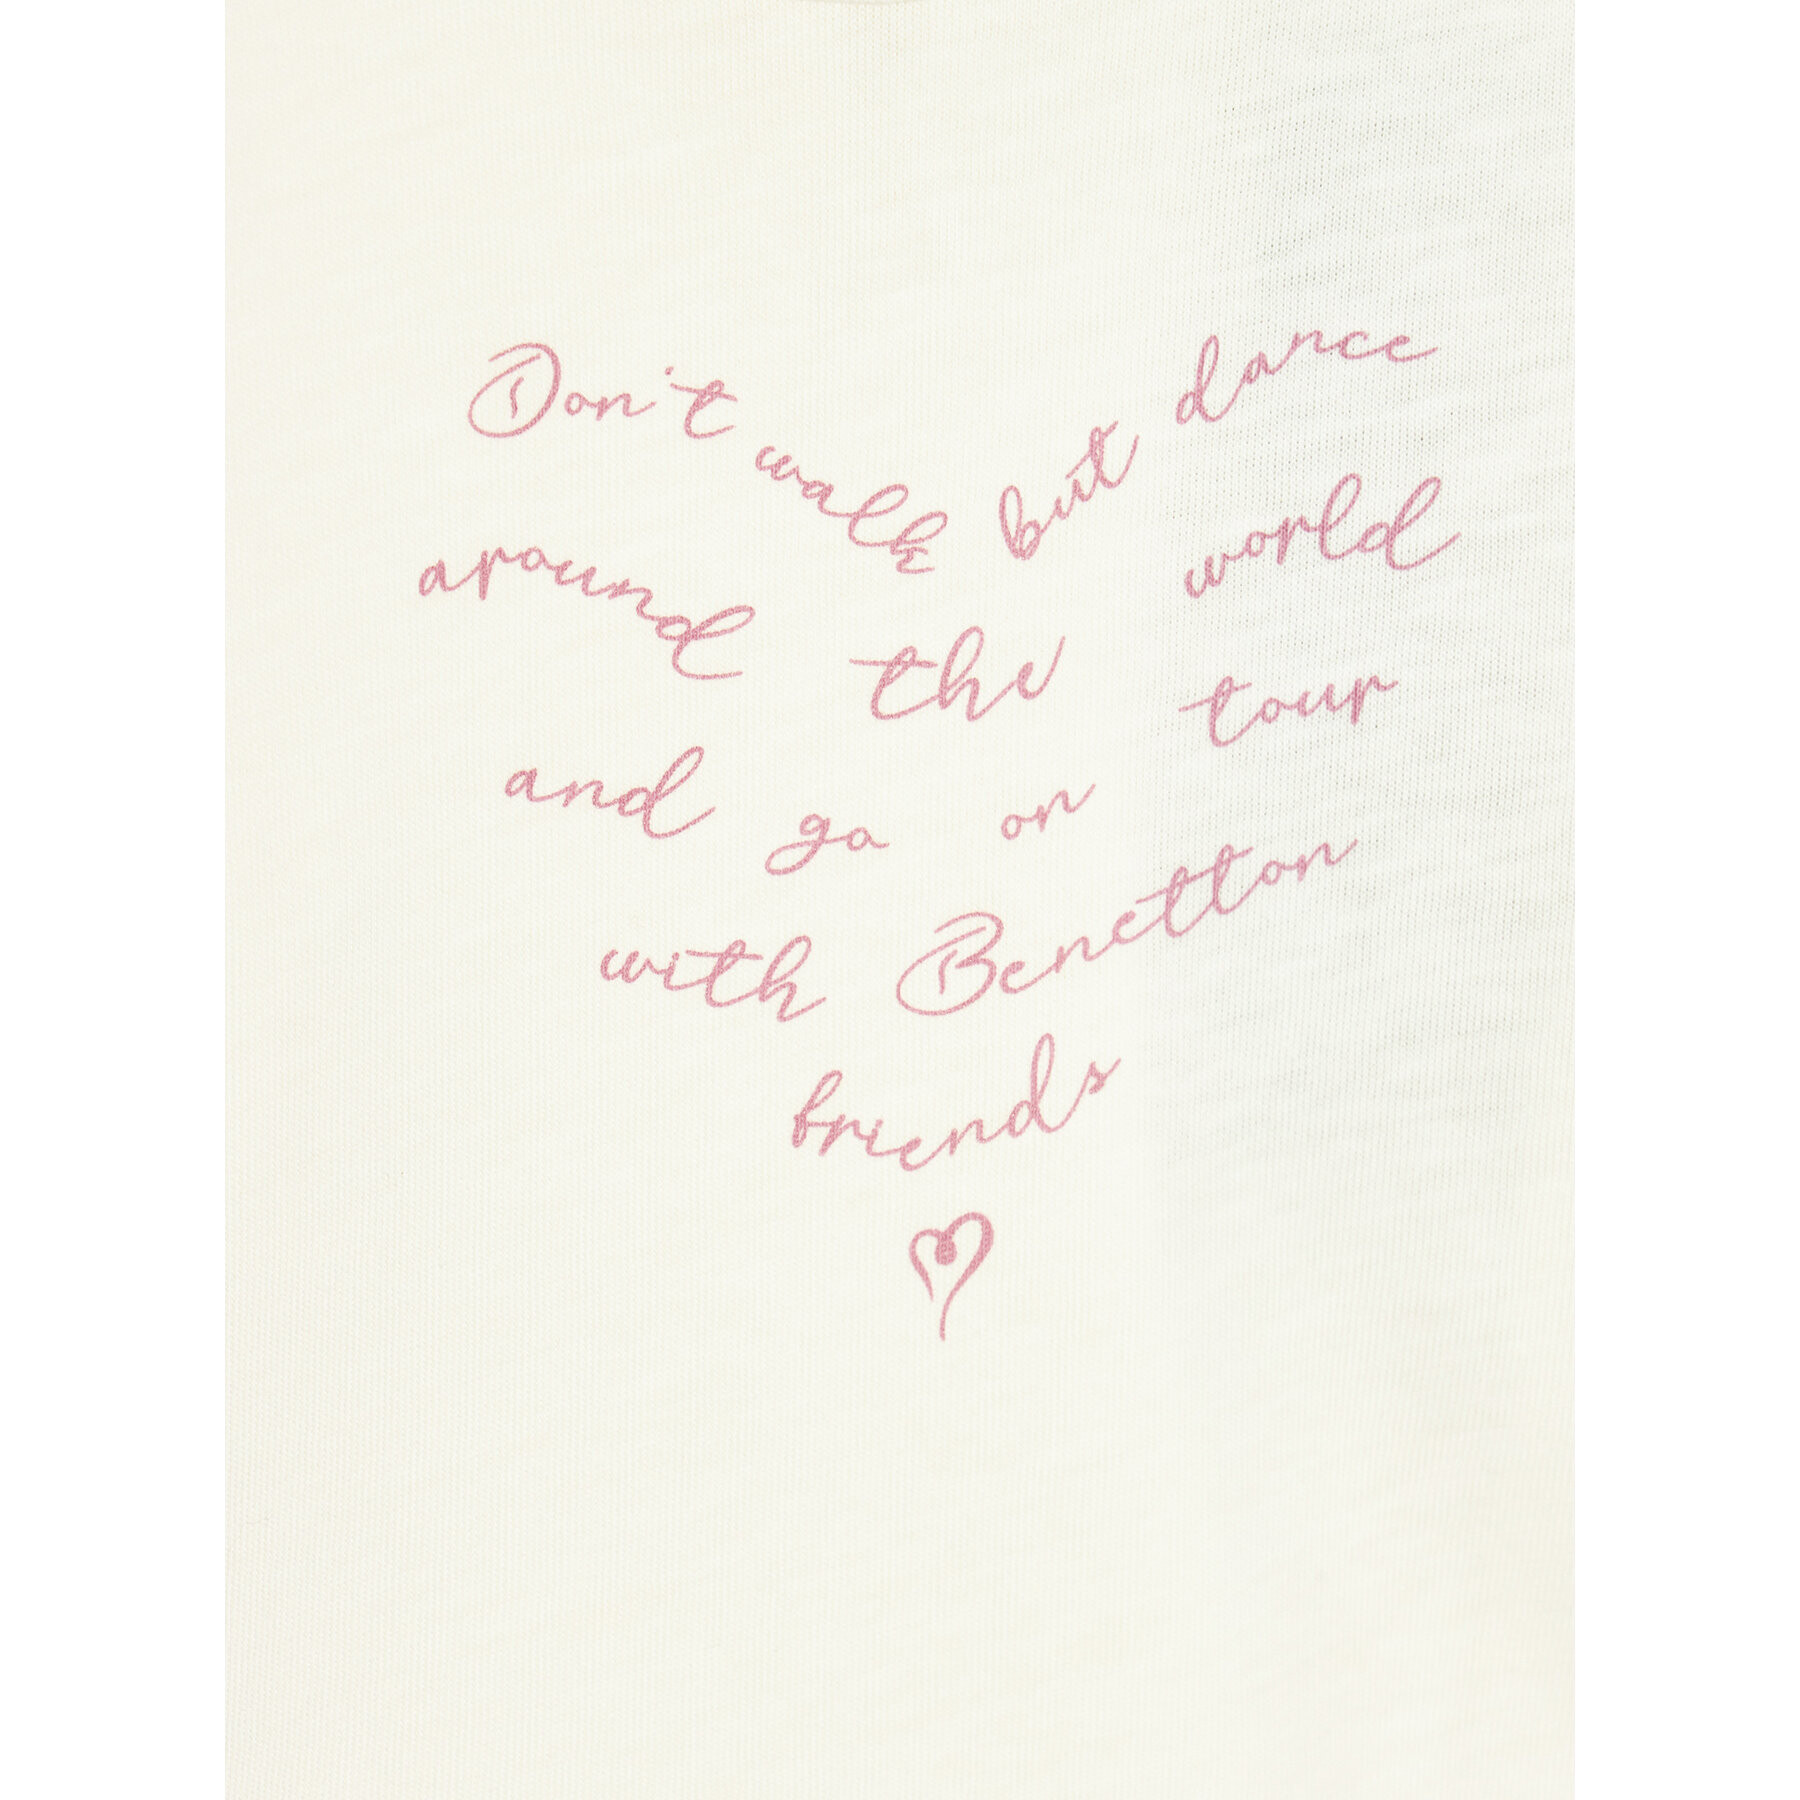 Don't walk but dance
around the world
and go on tour
with Benetton
friends